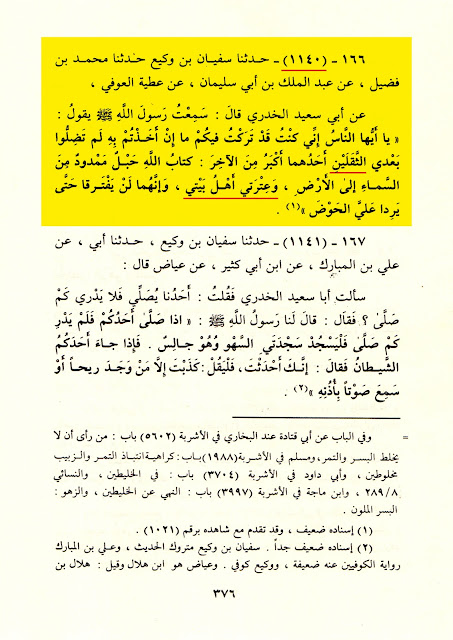 ١٦٦ - (١١٤٠) - حدثنا سفيان بن وكيع حدثنا محمد بن
فضيل ، عن عبد الملك بن أبي سليمان ، عن عطية العوفي ،
عن أبي سعيد الخدري قالَ : سَمِعْتُ رَسولَ اللَّهِ ﷺ يقولُ :
« يا أَيُّها النَّاسُ إِنِّي كُنْتُ قَدْ تَرَكْتُ فيكُمْ ما إِنْ أَخَذْتُمْ بِهِ لَم تَضِلُّوا
بَعْدي الثَّقَلَيْنِ أَحَدُهما أَكْبَرُ مِنَ الآخِرَ : كتابُ اللَّهِ حَبْلٌ مَمْدودٌ مِنَ
السَّماءِ إِلىٰ الأَرْضِ ، وَعِتْرَتي أَهْلُ بَيْتي ، وَإِنَّهُما لَنْ يَفْتَرقا حَتَّى
يَرِدا عَليَّ الحَوْضَ »(١) .
١٦٧ - (١١٤١) - حدثنا سفيان بن وكيع ، حدثنا أبي ، عن
علي بن المبارك ، عن ابن أبي كثير ، عن عياض قال :
سألت أبا سعيد الخدري فَقُلتُ : أَحَدُنا يُصَلِّي فَلا يَدْري كَمْ
صَلَّى ؟ فَقَالَ : قالَ لَنا رَسولُ اللَّهِ ﷺ : « اذا صَلَّى أَحَدُكُمْ فَلَمْ يَدْرِ
كَمْ صَلَّى فَلْيَسْجُدْ سَجْدَتَيِ السَّهْوِ وَهُوَ جالِسٌ . فَإِذا جاءَ أَحَدَكُمُ
الشَّيطانُ فَقالَ : إِنَّكَ أَحْدَثْتَ ، فَلْيَقُلْ : كَذَبْتَ إِلاَّ مَنْ وَجَدَ ريحاً أَوْ
سَمِعَ صَوْتاً بِأُذُنِهِ »(٢) .
= وفي الباب عن أبي قتادة عند البخاري في الأشربة (٥٦٠٢) باب : من رأى أن لا
يخلط البسر والتمر، ومسلم في الأشربة (١٩٨٨) بـاب : كراهيـة انتبـاذ التمر والـزبيب
مخلوطين ، وأبي داود في الأشربة (٣٧٠٤) باب : في الخليطين ، والنسائي
٢٨٩/٨ ، وابن ماجة في الأشربة (٣٩٩٧) باب : النهي عن الخليطين ، والزهو :
البسر الملون .
(١) إسناده ضعيف ، وقد تقدم مع شاهده برقم (١٠٢١) .
(٢) إسناده ضعيف جداً . سفيان بن وكيع متروك الحديث ، وعلي بن المبارك
رواية الكوفيين عنه ضعيفة ، ووكيع كوفي . وعياض هو ابن هلال وقيل : هلال بن
٣٧٦